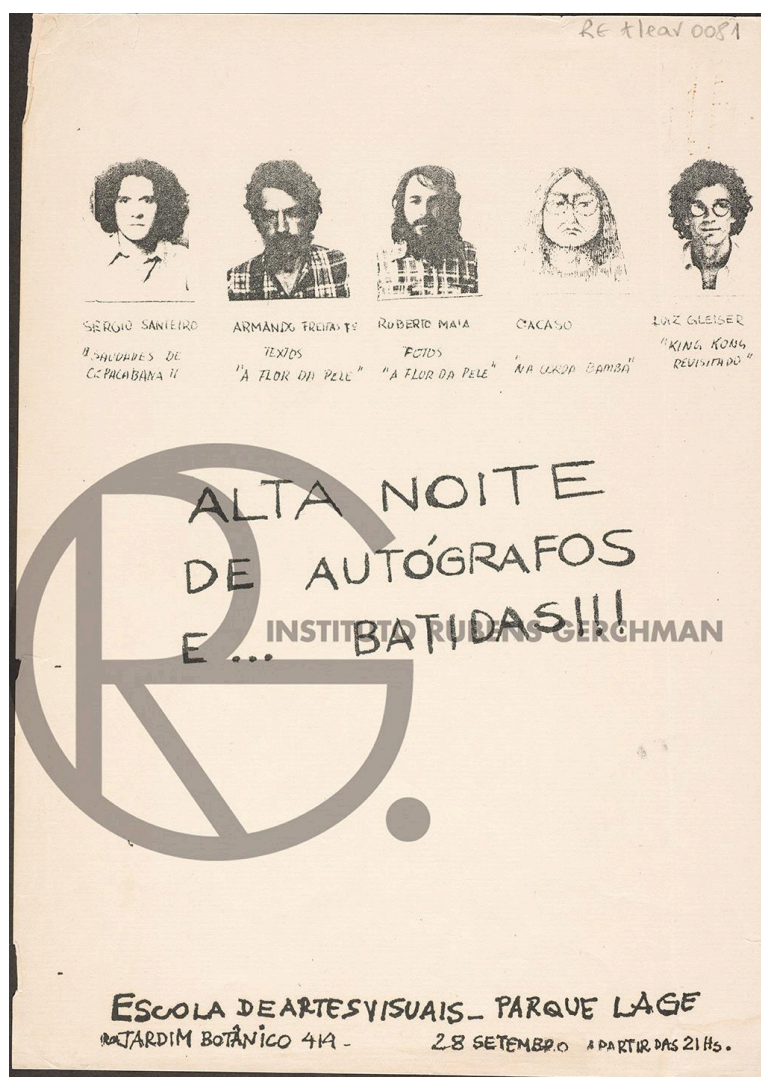 RG tlear 0081
SÉRGIO SANTEIRO
"SAUDADES DE
COPACABANA"
ARMANDO FREITAS Fº
TEXTOS
"A FLOR DA PELE"
ROBERTO MAIA
FOTOS
"A FLOR DA PELE"
CACASO
"NA CORDA BAMBA"
LUIZ GLEISER
"KING KONG
REVISITADO"
ALTA NOITE
DE AUTÓGRAFOS
E... BATIDAS!!!
INSTITUTO RUBENS GERCHMAN
ESCOLA DE ARTES VISUAIS_ PARQUE LAGE
RUA JARDIM BOTÂNICO 414 -
28 SETEMBRO A PARTIR DAS 21 Hs.